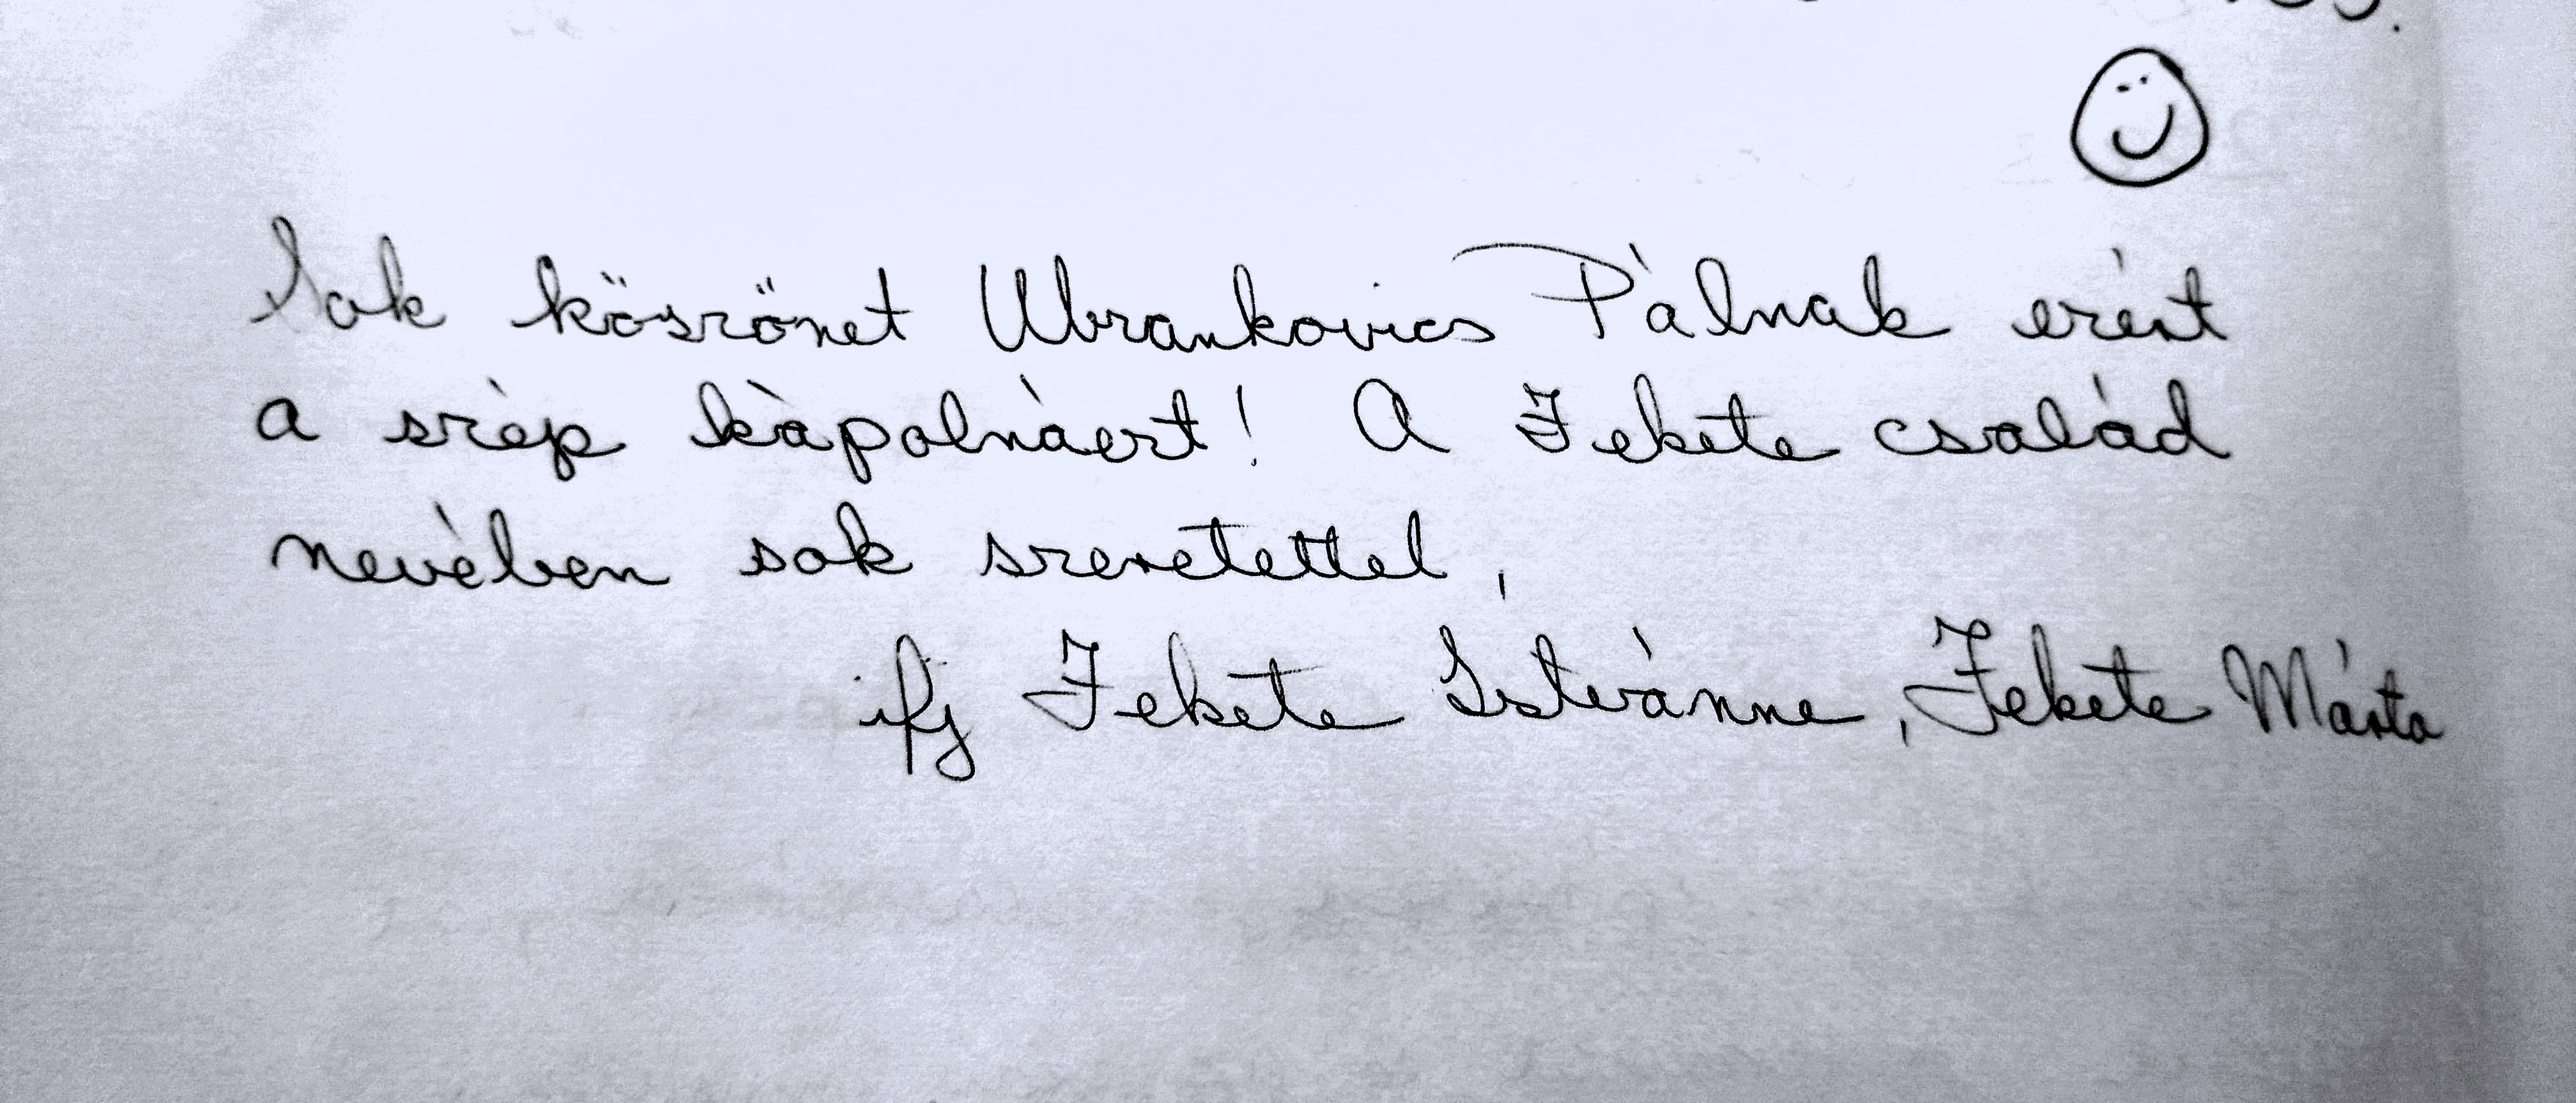 Sok köszönet Ubrankovics Pàlnak ezért
a szèp kàpolnàert! A Fekete család
nevèben sok szeretettel,
ifj Fekete Istvànne, Fekete Márta